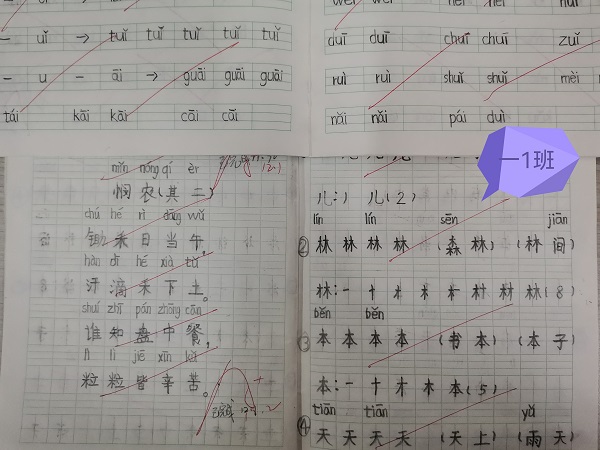 – uǐ → tuǐ tuǐ tuǐ tuǐ
– u – āi → guāi guāi guāi
tái kāi kāi cāi cāi
duī duī chuī chuī zuǐ
ruì ruì shuǐ shuǐ mèi
nǎi nǎi pái duì
一1班
mǐn nóng qí èr
悯农(其二)
chú hé rì dāng wǔ
锄禾日当午,
hàn dī hé xià tǔ
汗滴禾下土。
shuí zhī pán zhōng cān
谁知盘中餐,
lì lì jiē xīn kǔ
粒粒皆辛苦。
儿:) 儿(2)
lín lín sēn jiān
②林 林 林 林 (森林) (林间)
林:一 十 才 木 林(8)
běn běn
③本 本 本 本 (书本) (本子)
本:一 十 才 木 本(5)
tiān tiān yǔ
④天 天 天 天 (天上) (雨天)